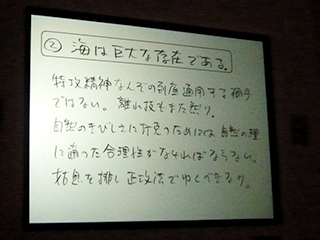 ② 海は巨大な存在である。
特攻精神なんぞの到底通用する相手
ではない。離れ技もまた然り。
自然のきびしさに打克つためには自然の理
に適った合理性がなければならない。
姑息を排し正攻法でゆくべきなり。